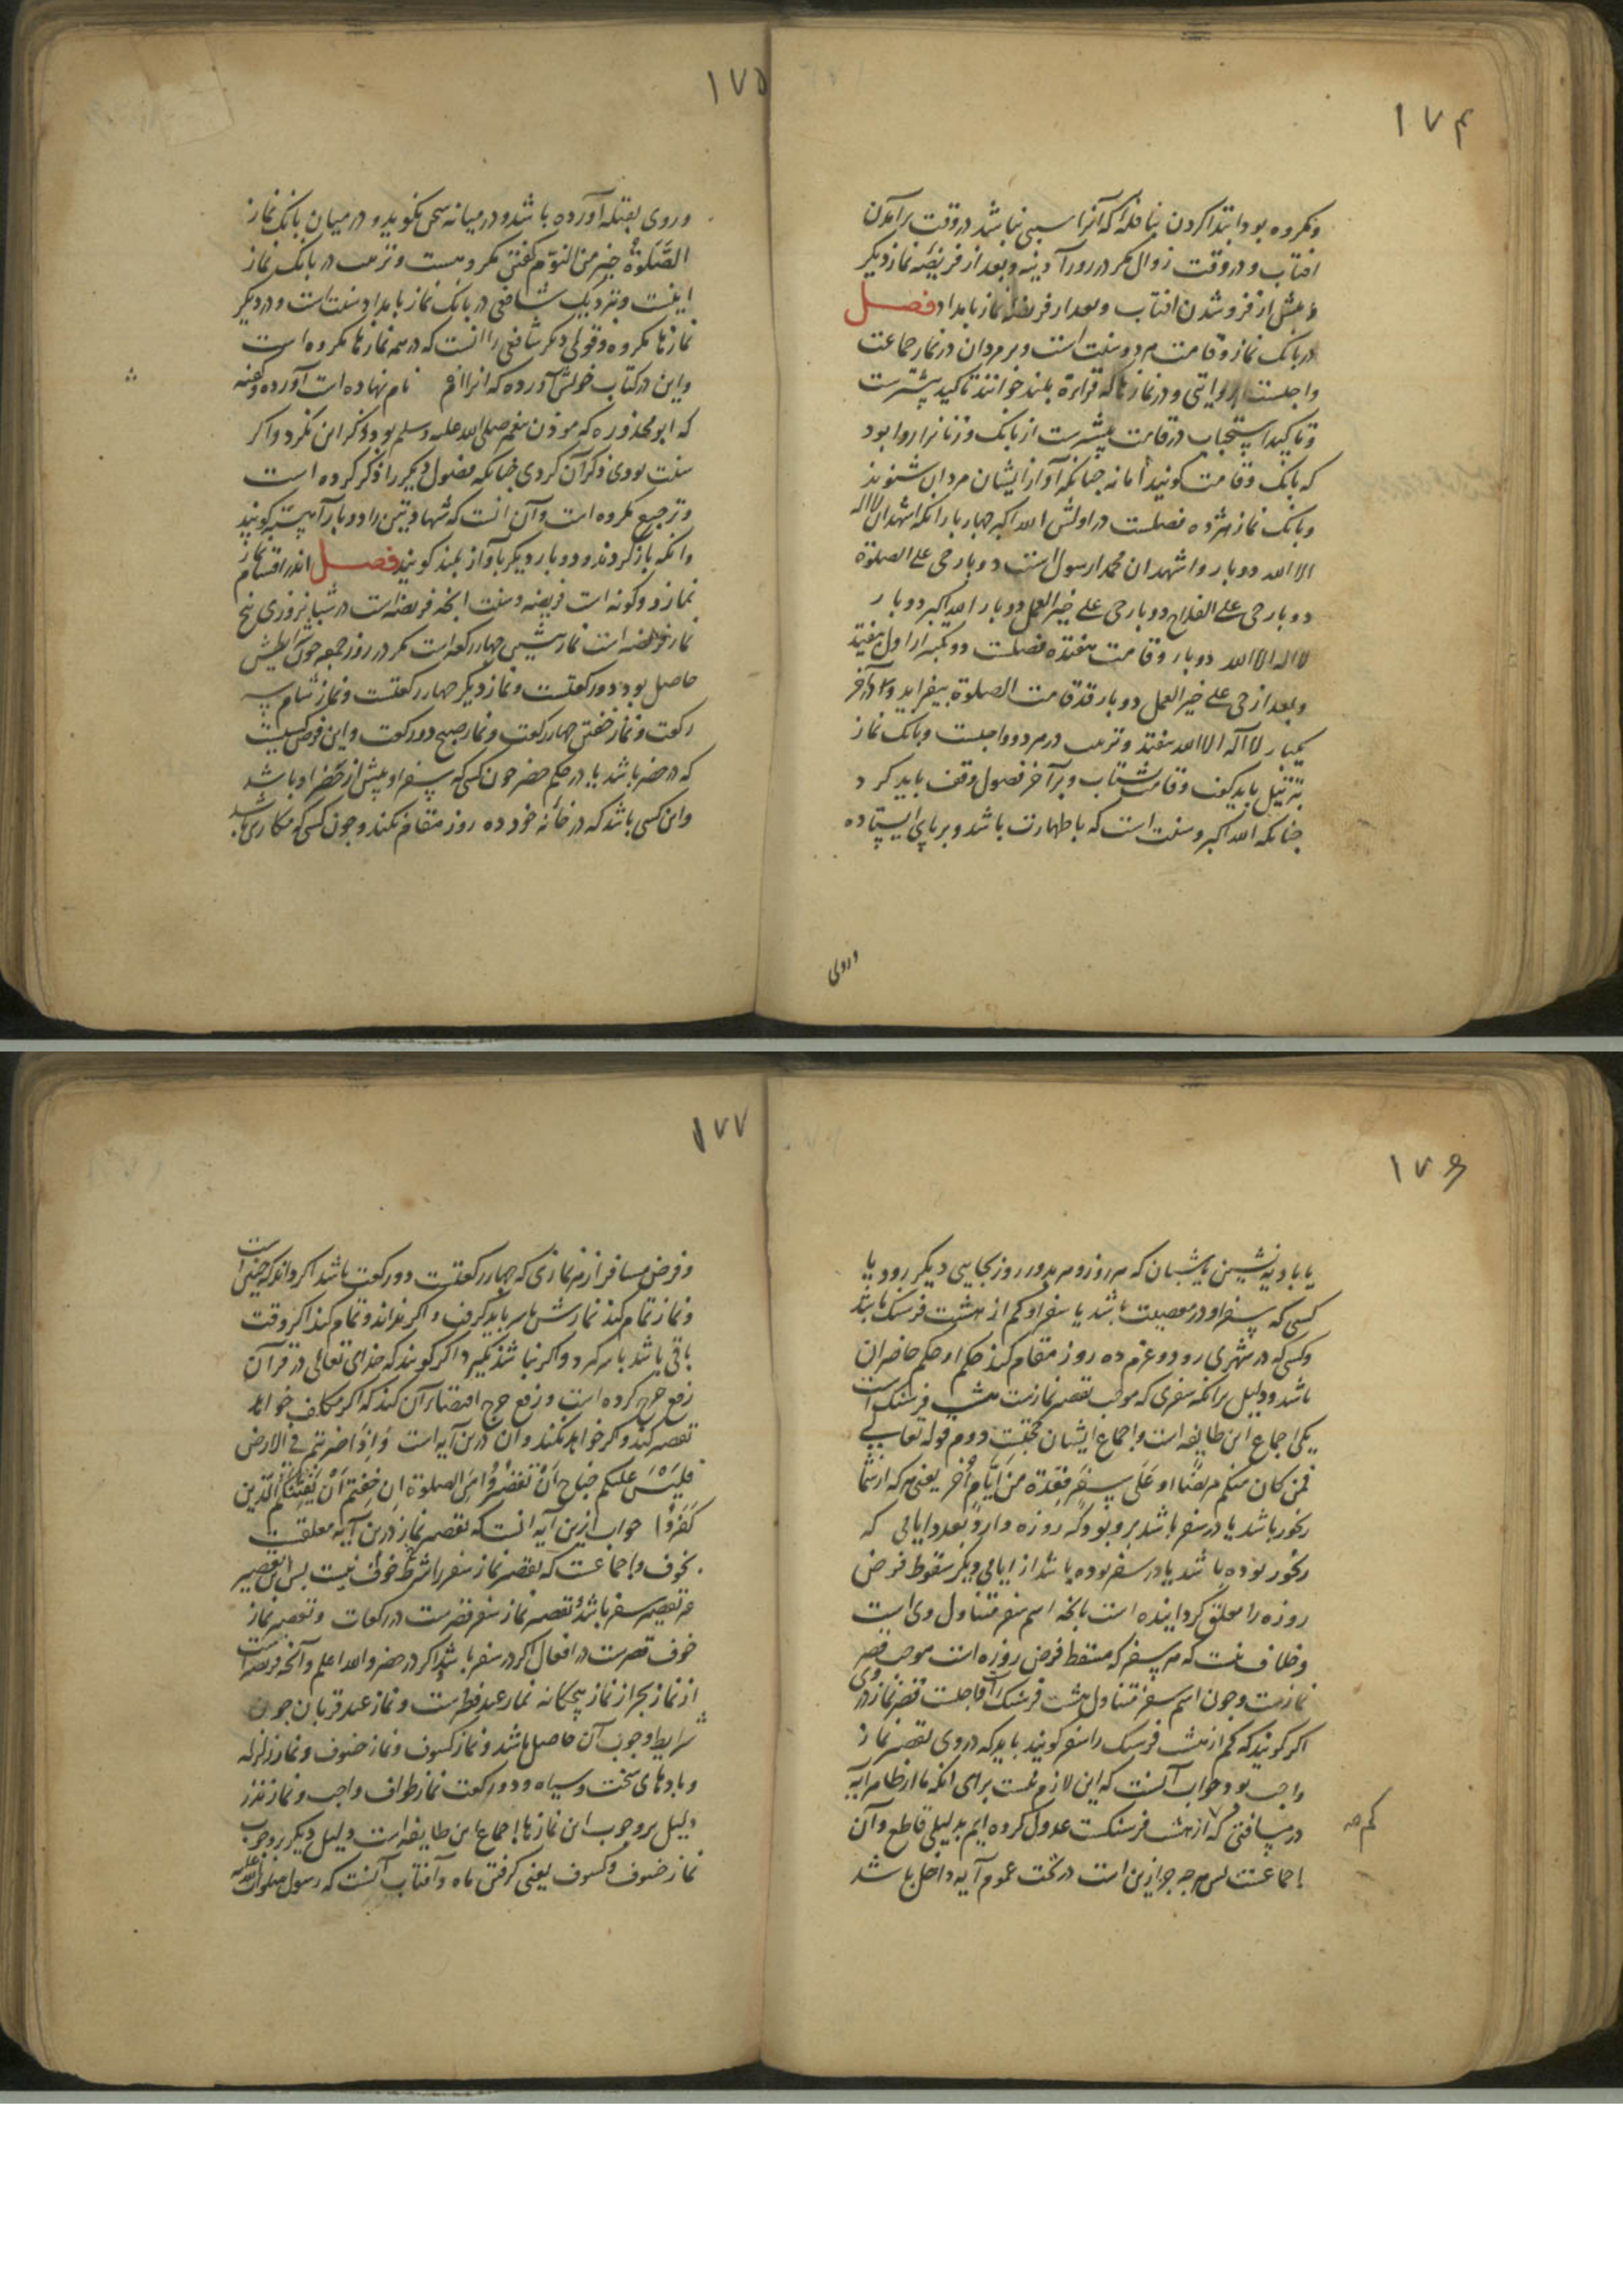 ۱۷۴
ومکروه بود ابتدا کردن بنافله که آنرا سببی نباشد در وقت برآمدن
افتاب و در وقت زوال مکر در روز آدینه و بعد از فریضه نماز دیکر
تا پیش از فرو شدن افتاب و بعد از فریضه نماز بامداد فصل
در بانک نماز وقامت هر دو سنت است و بر مردان در نماز جماعت
واجبست بروایتی و در نمازها که قراءة بلند خوانند تاکید بیشترست
وتاکید استحباب در قامت بیشترست از بانک و زنانرا روا بود
که بانک وقامت کویند اما نه چنانکه آواز ایشان مردان شنوند
وبانک نماز هژده فصلست در اولش الله اکبر چهار بار انکه اشهد ان لا اله
الا الله دوبار واشهد ان محمدا رسول الله دوبار حی علی الصلوة
دوبار حی علی الفلاح دوبار حی علی خیر العمل دوبار الله اکبر دوبار
لا اله الا الله دوبار وقامت هفتده فصلست دو تکبیر از اول بیفتد
وبعد از حی علی خیر العمل دوبار قد قامت الصلوة بیفزاید و در آخر
یکبار لا اله الا الله بیفتد وترتیب در هر دو واجبست وبانک نماز
بترتیل باید کفت وقامت بشتاب وبر آخر فصول وقف باید کرد
چنانکه الله اکبر و سنت است که با طهارت باشد و بر پای ایستاده
وروی
۱۷۵
وروی بقبله آورده باشد و در میانه سخن نکوید و در میان بانک نماز
الصَّلوةُ خیر من النوم کفتن مکروهست وتثویب در بانک نماز
اینست وبنزدیک شافعی در بانک نماز بامداد سنت است و در دیکر
نمازها مکروه وقولی دیکر شافعی را انست که در همه نمازها مکروه است
واین در کتاب خویش آورده که انرا ام نام نهاده است آورده وکفته
که ابو محذوره که موذن پیغمبر صلی الله علیه وسلم بود ذکر این نکرد واکر
سنت بودی ذکر آن کردی چنانکه فصول دیکر را ذکر کرده است
وترجیع مکروه است وآن انست که شهادتین را دوبار آهسته کویند
وانکه باز کردند و دوبار دیکر بآواز بلند کویند فصل اندر اقسام
نماز دو کونه است فریضه و سنت انچه فریضه است در شبانروزی پنج
نماز فریضه است نماز پیشین چهار رکعت است مکر در روز جمعه چون شرایطش
حاصل بود دو رکعتست ونماز دیکر چهار رکعتست ونماز شام سه
رکعت ونماز خفتن چهار رکعت ونماز صبح دو رکعت واین فرض کسیست
که در حضر باشد یا در حکم حضر چون کسی که سفر او بیش از حضر او باشد
واین کسی باشد که در خانه خود ده روز مقام نکند و چون کسی که مکاری باشد
۱۷۶
یا بادیه نشین یا شبان که هر روز و هر دو روز بجایی دیکر رود یا
کسی که سفر او در معصیت باشد یا سفر او کم از هشت فرسنک باشد
وکسی که در شهری رود وعزم ده روز مقام کند حکم او حکم حاضران
باشد ودلیل بر انکه سفری که موجب تقصیر نمازست هشت فرسنک است
یکی اجماع این طایفه است واجماع ایشان حجتست دوم قوله تعالی
فمن کان منکم مریضا او علی سفر فعدة من ایام اخر یعنی هرکه از شما
رنجور باشد یا در سفر باشد برو بود که روزه دارد بعدد ایامی که
رنجور بوده باشد یا در سفر بوده باشد از ایامی دیکر سقوط فرض
روزه را معلق کردانیده است بانچه اسم سفر متناول ویست
وخلاف نیست که هر سفر که مسقط فرض روزه است موجب قصر
نمازست وچون اسم سفر متناول هشت فرسنک است واجبست قصر نماز در وی
اکر کویند که کم از هشت فرسنک را سفر کویند باید که در وی تقصیر نماز
واجب بود جواب آنست که این لازم نیست برای انکه ما از ظاهر آیه
در مسافتی که از هشت فرسنکست عدول کرده ایم بدلیلی قاطع وآن
اجماعست پس هرچه جز ازین است در تحت عموم آیه داخل باشد
کم صح
۱۷۷
وفرض مسافر از هر نمازی که چهار رکعتست دو رکعت باشد اکر داند که چنین است
ونماز تمام کند نمازش با سر باید کرفت واکر نداند وتمام کند اکر وقت
باقی باشد با سر کیرد واکر نباشد نکیرد اکر کویند که خدای تعالی در قرآن
رفع حرج کرده است ورفع حرج اقتضاء آن کند که اکر مکلف خواهد
تقصیر کند واکر خواهد نکند وآن درین آیه است وَاِذا ضربتم فی الارض
فلیس علیکم جناح اَن تقصروا من الصلوة ان خفتم اَن یفتنکم الذین
کفروا جواب ازین آیه انست که تقصیر نماز درین آیه معلقست
بخوف واجماعست که تقصیر نماز سفر را شرط خوف نیست پس این تقصیر
غیر تقصیر سفر باشد وتقصیر نماز سفر قصرست در رکعات وتقصیر نماز
خوف قصرست در افعال اکر در سفر باشد واکر در حضر والله اعلم وآنچه فریضه است
از نماز بجز از نماز پنجکانه نماز عید فطرست ونماز عید قربان چون
شرایط وجوب آن حاصل باشد ونماز کسوف ونماز خسوف ونماز زلزله
وبادهای سخت وسیاه ودو رکعت نماز طواف واجب ونماز نذر
دلیل بر وجوب این نمازها اجماع این طایفه است دلیل دیکر بر وجوب
نماز خسوف وکسوف یعنی کرفتن ماه وآفتاب آنست که رسول صلوات الله علیه